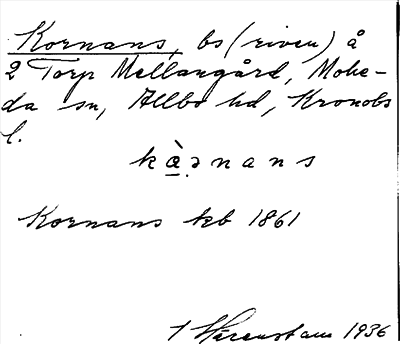 Kornans, bs (riven) å
2 Torp Mellangård, Mohe-
da sn, Allbo hd, Kronobs
l.
kà̱ṇnans
Kornans kb 1861
1936